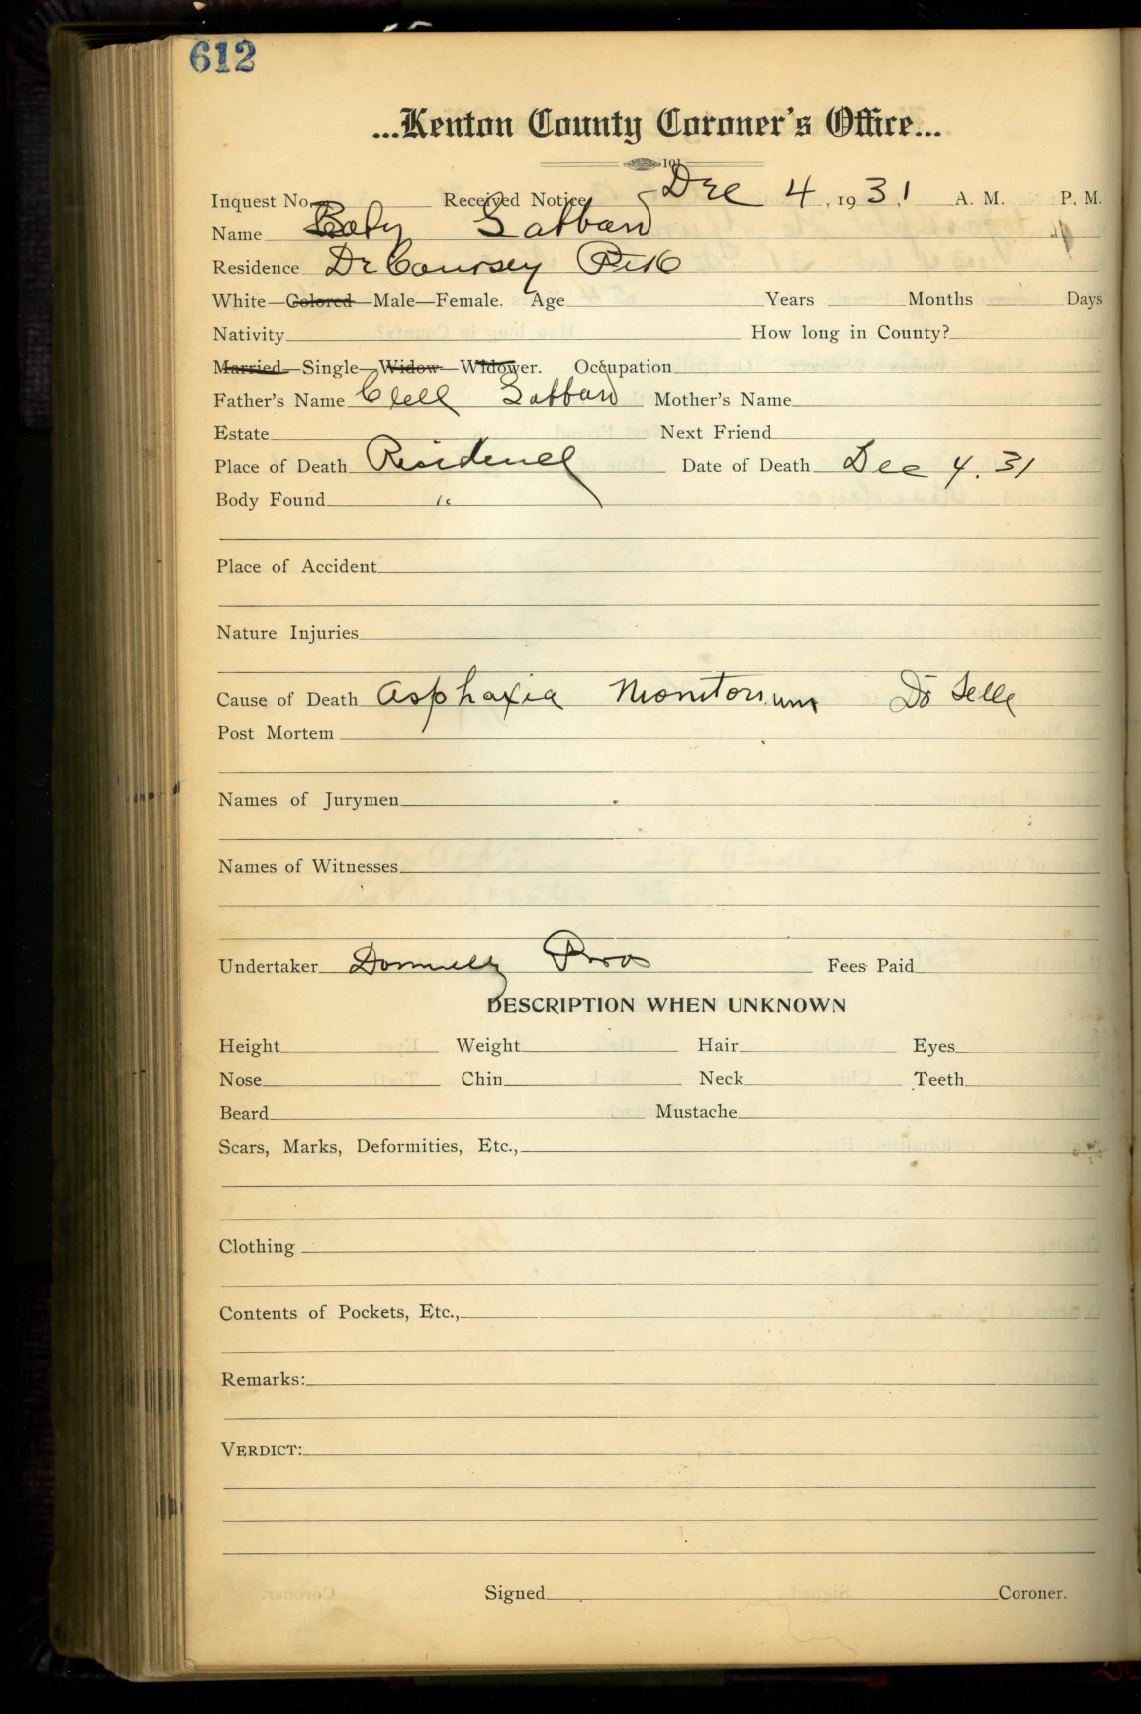 612
...Kenton County Coroner's Office...
101
Inquest No. Received Notice Dec 4, 1931 A. M. P. M.
Name Baby
Residence DeCoursey Pike
White—Colored—Male—Female. Age Years Months Days
Nativity How long in County?
Married—Single—Widow—Widower. Occupation
Father's Name Clell Mother's Name
Estate Next Friend
Place of Death Residence Date of Death Dec 4. 31
Body Found "
Place of Accident
Nature Injuries
Cause of Death Asphaxia Dr
Post Mortem
Names of Jurymen
Names of Witnesses
Undertaker Donnelly Bros Fees Paid
DESCRIPTION WHEN UNKNOWN
Height Weight Hair Eyes
Nose Chin Neck Teeth
Beard Mustache
Scars, Marks, Deformities, Etc.,
Clothing
Contents of Pockets, Etc.,
Remarks:
VERDICT:
Signed Coroner.